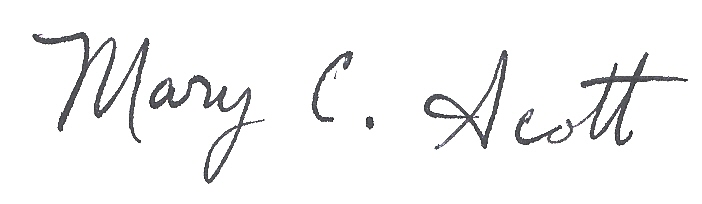 Mary C. Scott